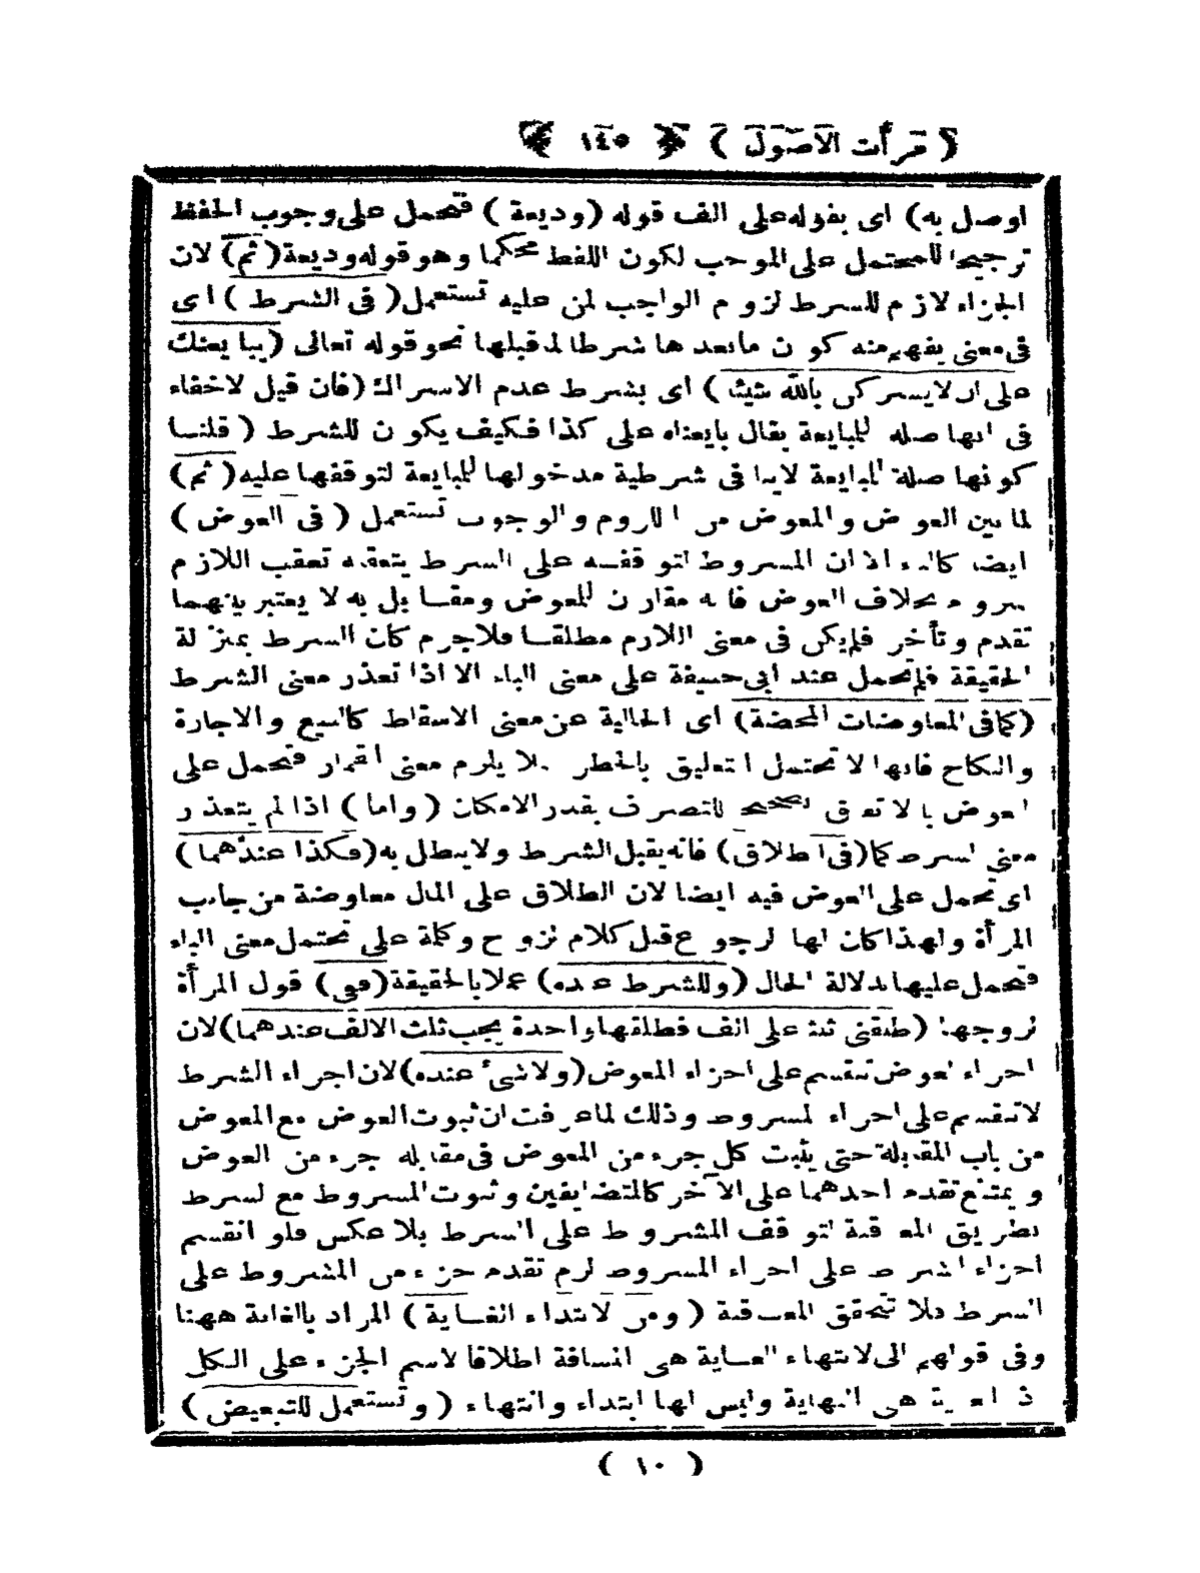 ( مرأت الاصول ) ﴿ ١٤٥ ﴾
اوصل به) اى بقوله على الف قوله (وديعة) فتحمل على وجوب الحفظ
ترجيحا للمحتمل على الموجب لكون اللفظ محكما وهو قوله وديعة (ثم) لان
الجزاء لازم للشرط لزوم الواجب لمن عليه تستعمل (فى الشرط) اى
فى معنى يفهم منه كون مابعدها شرطا لما قبلها نحو قوله تعالى (يبايعنك
على ان لايشركن بالله شيئا) اى بشرط عدم الاشراك (فان قيل لاخفاء
فى انها صلة للمبايعة يقال بايعناه على كذا فكيف يكون للشرط (قلنا
كونها صلة للمبايعة لاينافى شرطية مدخولها للمبايعة لتوقفها عليه (ثم)
لما بين العوض والمعوض من اللزوم والوجوب تستعمل (فى العوض)
ايضا كالباء الا ان المشروط لتوقفه على الشرط يتعقبه تعقب اللازم
بخلاف العوض فانه مقارن للمعوض ومقابل به لا يعتبر بينهما
تقدم وتأخر فلم يكن فى معنى اللازم مطلقا فلاجرم كان الشرط بمنزلة
الحقيقة فلم تحمل عند ابى حنيفة على معنى الباء الا اذا تعذر معنى الشرط
(كما فى المعاوضات المحضة) اى الخالية عن معنى الاسقاط كالبيع والاجارة
والنكاح فانها لا تحتمل التعليق بالخطر لئلا يلزم معنى القمار فتحمل على
العوض بالاتفاق تصحيحا للتصرف بقدر الامكان (واما) اذا لم يتعذر
معنى الشرط كما (فى الطلاق) فانه يقبل الشرط ولايبطل به (فكذا عندهما)
اى تحمل على العوض فيه ايضا لان الطلاق على المال معاوضة من جانب
المرأة ولهذا كان لها الرجوع قبل كلام الزوج وكلمة على تحتمل معنى الباء
فتحمل عليها بدلالة الحال (وللشرط عنده) عملا بالحقيقة (ففى) قول المرأة
لزوجها (طلقنى ثلثا على الف فطلقها واحدة يجب ثلث الالف عندهما) لان
اجزاء العوض تنقسم على اجزاء المعوض (ولاشئ عنده) لان اجزاء الشرط
لاتنقسم على اجزاء المشروط وذلك لما عرفت ان ثبوت العوض مع المعوض
من باب المقابلة حتى يثبت كل جزء من المعوض فى مقابلة جزء من العوض
ويمتنع تقدم احدهما على الآخر كالمتضايفين وثبوت المشروط مع الشرط
بطريق المعاقبة لتوقف المشروط على الشرط بلا عكس فلو انقسم
اجزاء الشرط على اجزاء المشروط لزم تقدم جزء من المشروط على
الشرط فلا تتحقق المعاقبة (ومن لابتداء الغاية) المراد بالغاية ههنا
وفى قولهم الى لانتهاء الغاية هى المسافة اطلاقا لاسم الجزء على الكل
اذ الغاية هى النهاية وليس لها ابتداء وانتهاء (وتستعمل للتبعيض)
( ١٠ )